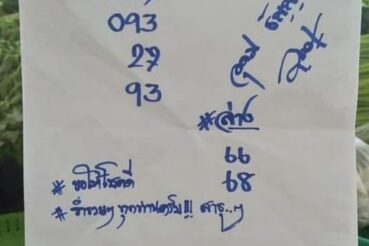 093
27
93
*ล่าง
66
68
* ขอให้โชคดี
* ร่ำรวยๆ ทุกท่านครับ!!! สาธุ..ๆ